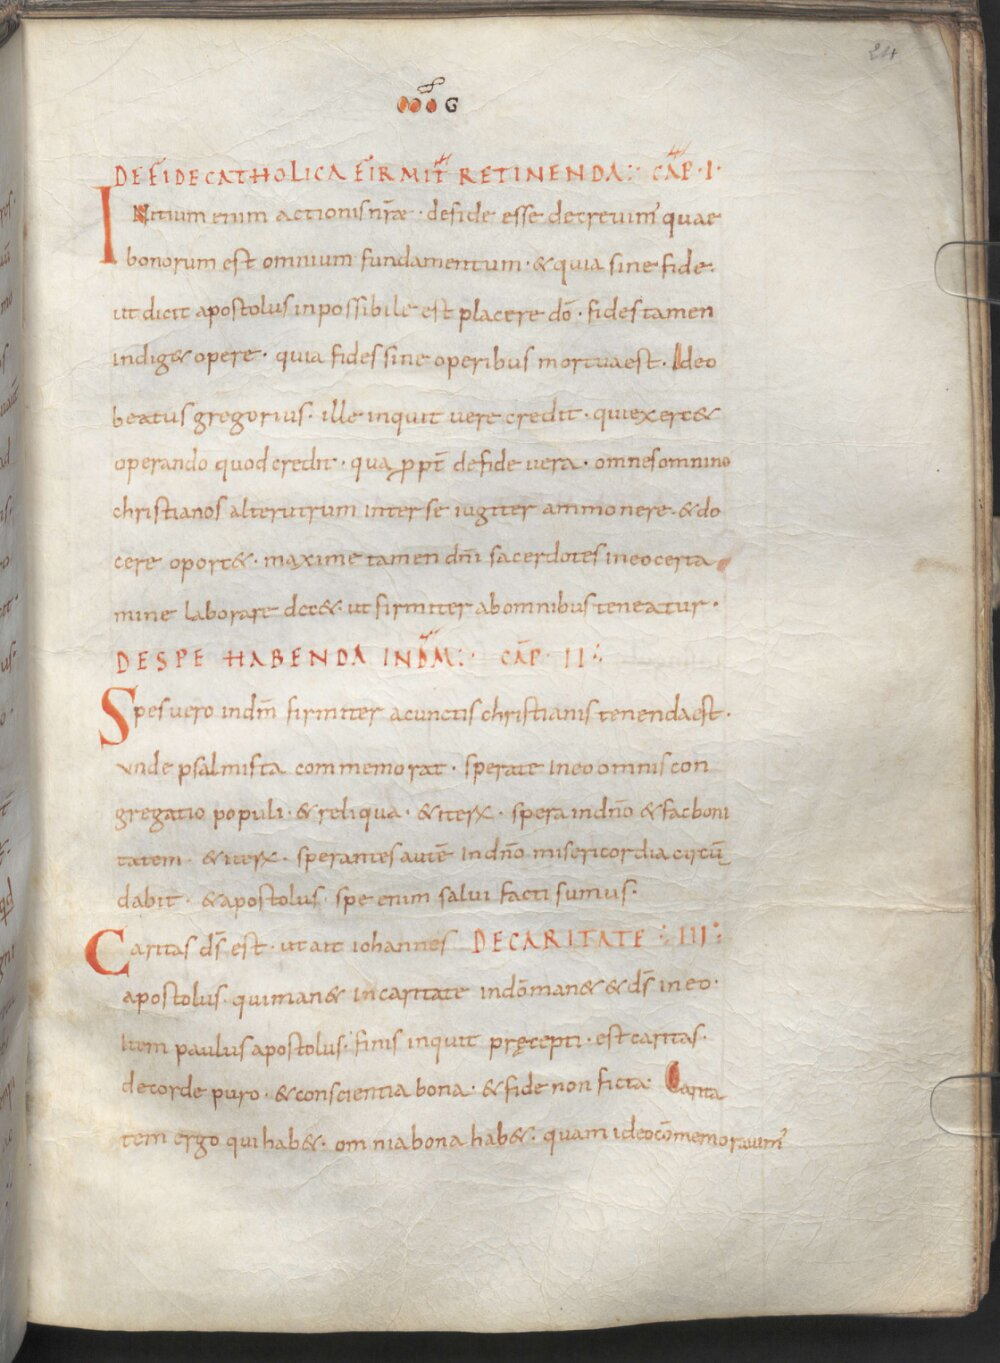 24
G
DE FIDE CATHOLICA FIRMIT RETINENDA CAP I
INitium enim actionis nr̄ae · de fide esse decrevim' quae
bonorum est omnium fundamentum · & quia sine fide ·
ut dicit apostolus inpossibile est placere dō · fides tamen
indig& opere · quia fides sine operibus mortua est · Ideo
beatus gregorius · ille inquit vere credit · qui exerc&
operando quod credit · qua ꝓpt̄ de fide vera · omnes omnino
christianos alterutrum inter se iugiter ammonere · & do
cere oport& · maxime tamen dm̄i sacerdotes in eo certa
mine laborare dec& · ut firmiter ab omnibus teneatur ·
DE SPE HABENDA IN DM̄ · CAP̄ · II
Spes vero in dm̄ firmiter a cunctis christianis tenenda est ·
unde psalmista commemorat · sperate in eo omnis con
gregatio populi · & reliqua · & iterꝝ · spera in dn̄o & fac boni
tatem · & iterꝝ · sperantes autē in dn̄o misericordia circū
dabit · & apostolus · spe enim salvi facti sumus ·
Caritas ds̄ est · ut ait iohannes DE CARITATE III
apostolus · qui man& in caritate in dō man& & ds̄ in eo ·
Item paulus apostolus · finis inquit pręcepti · est caritas ·
de corde puro · & conscientia bona · & fide non ficta · Carita
tem ergo qui hab& · omnia bona hab& · quam ideo cōmemoravim'